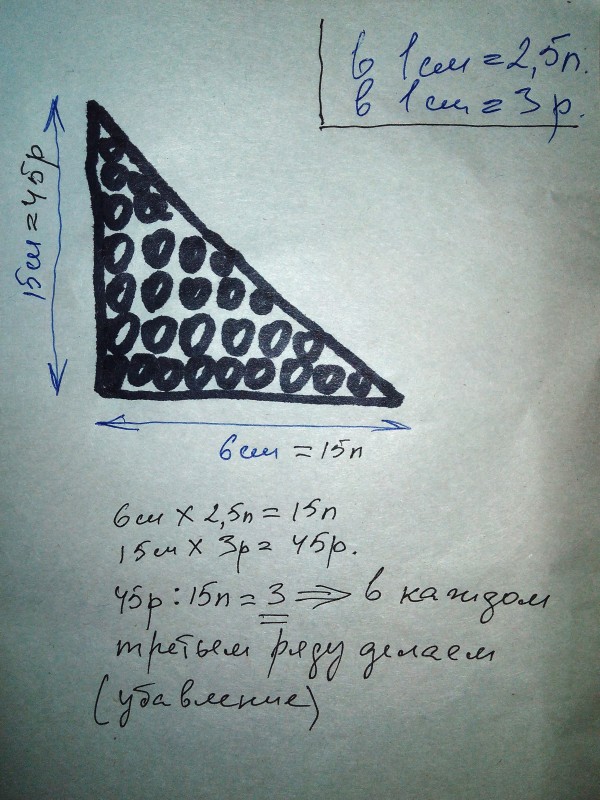 в 1см = 2,5п.
в 1см = 3р.
15см = 45р
6см = 15п
6см х 2,5п = 15п
15см х 3р = 45р.
45р : 15п = 3 ⇒ в каждом
третьем ряду делаем
(убавление)